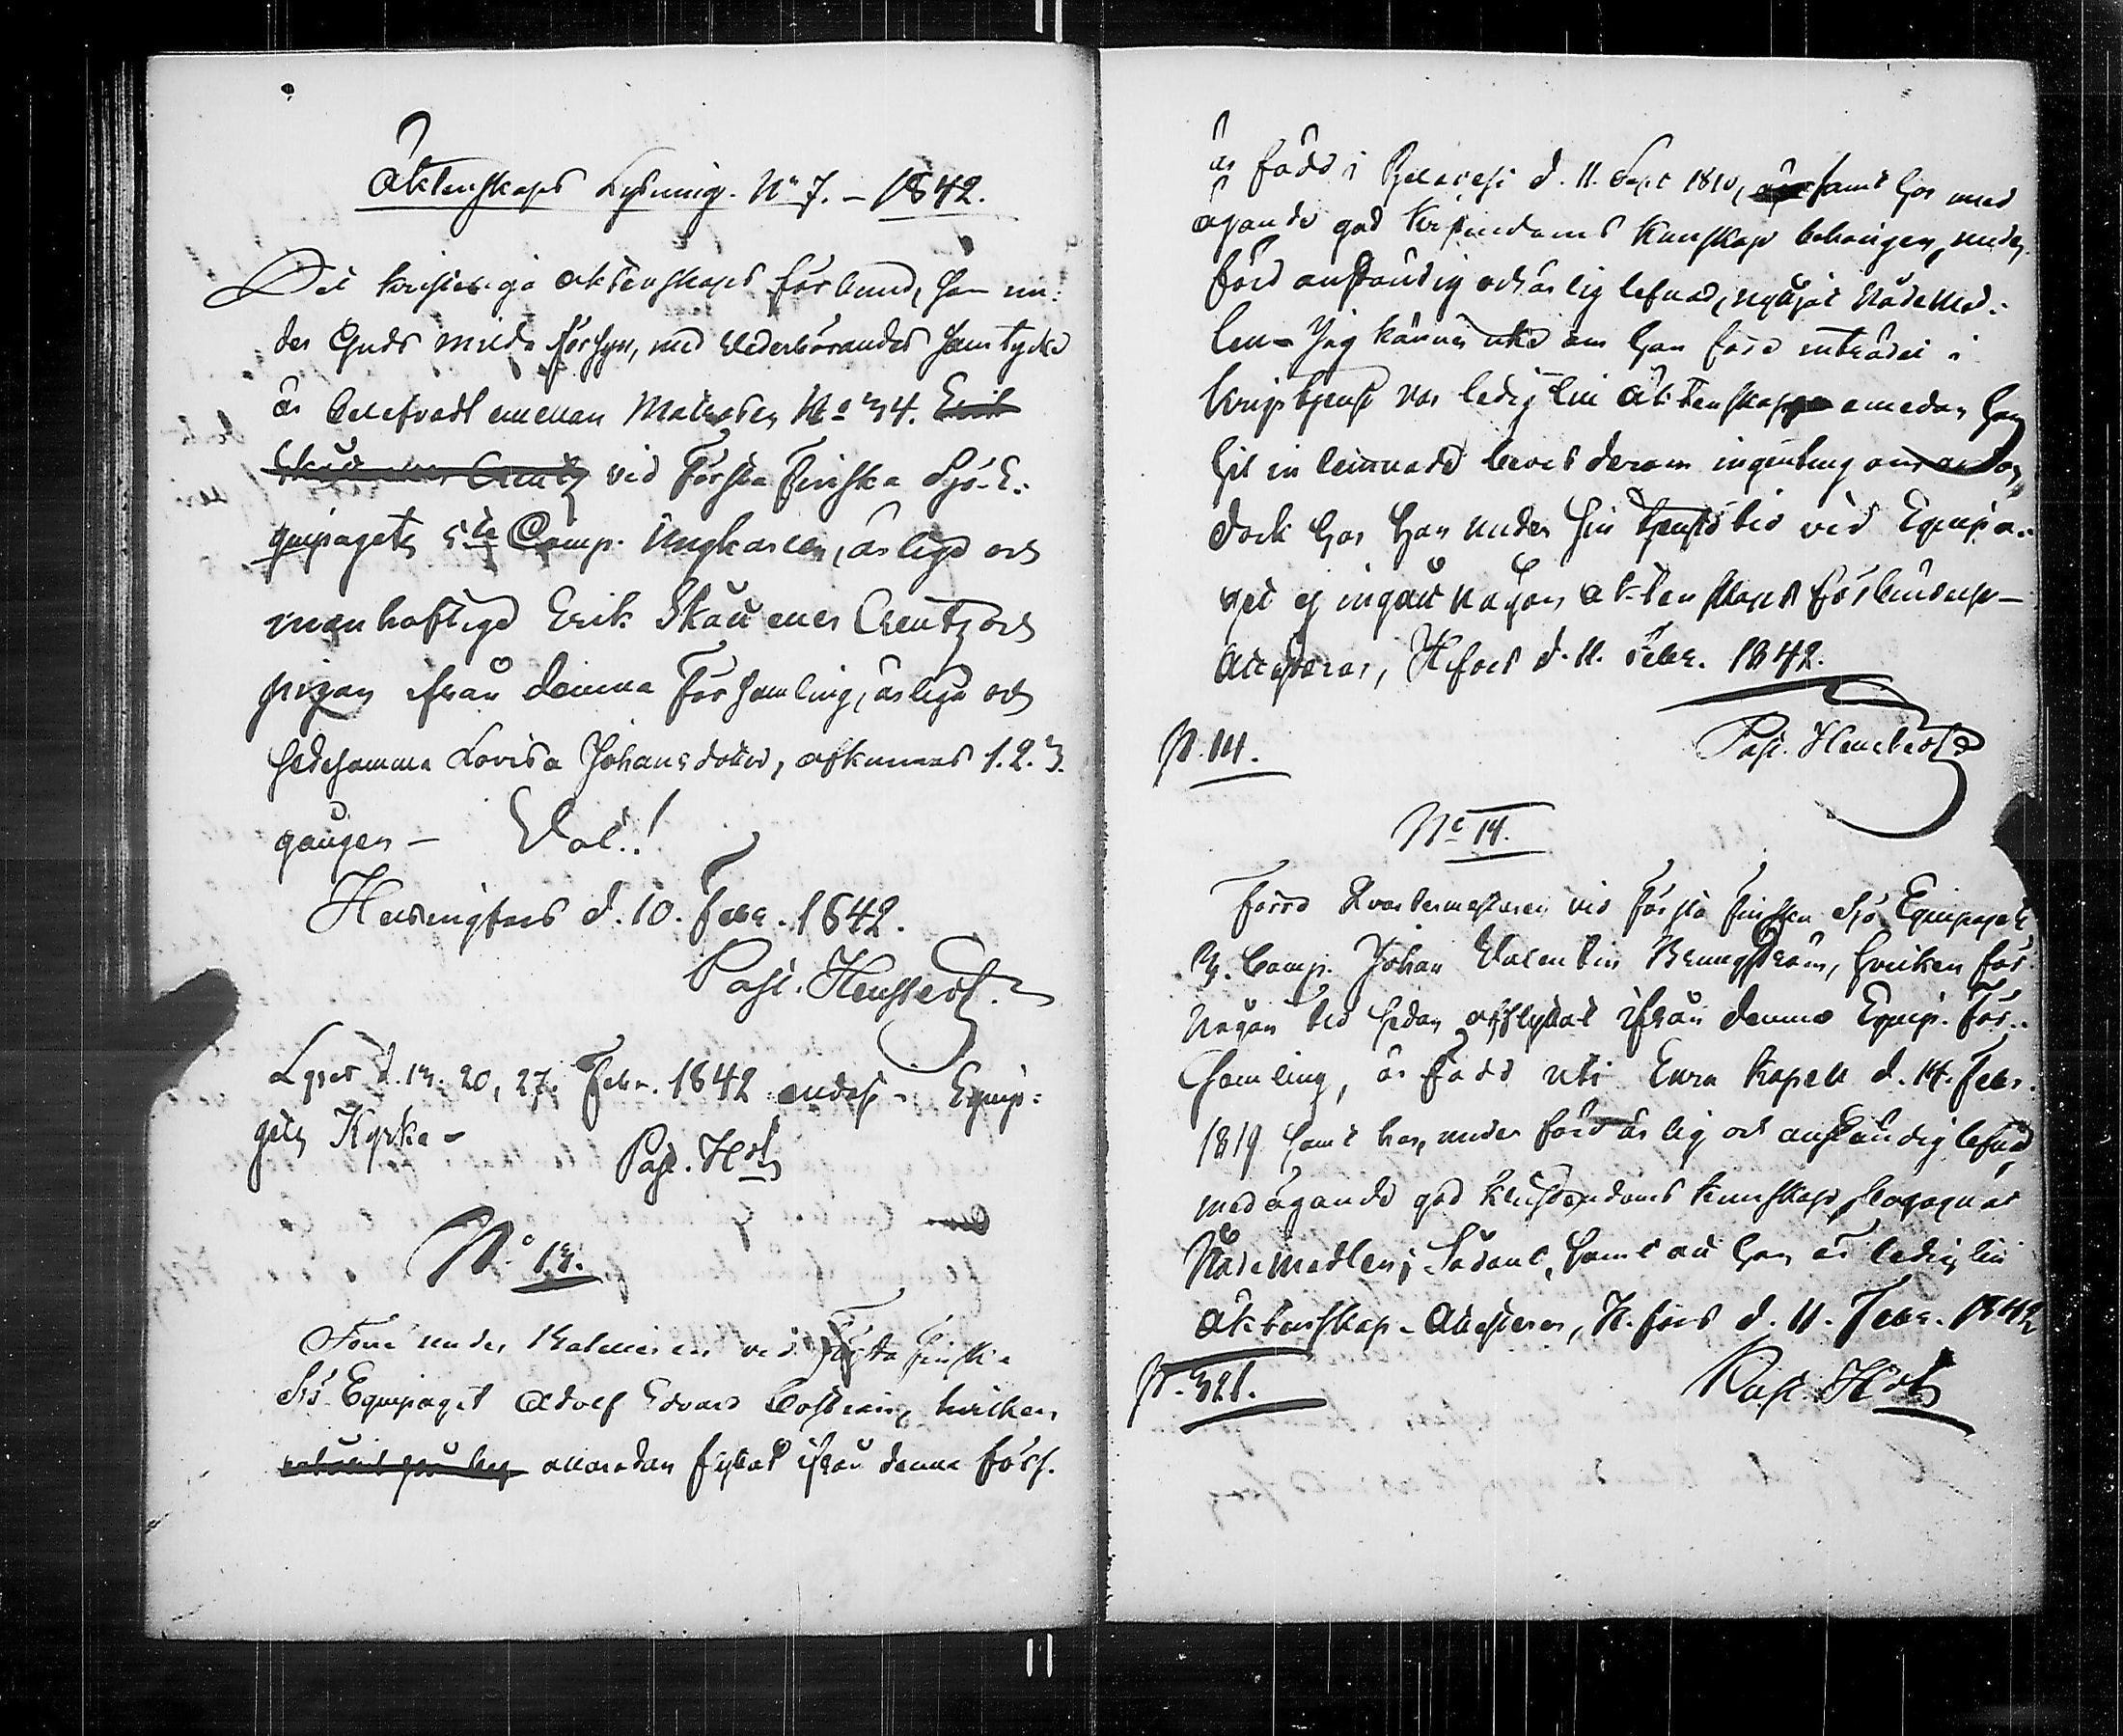 Äktenskaps Lysning. No 7. – 1842.
Det kristeliga äktenskaps förbund, som un:
der Guds milda försyn, med Vederbörandes samtycke
är belefvadt emellan Matrosen No 34. Erik
Creutz vid Första Finska Sjö-E:
quipagets 5te Comp. Ungkarlen, ärlige och
manhaftige Erik Creutz och
pigan ifrån denna Församling, ärliga och
sedesamma Lovisa Johansdotter, afkunnas 1. 2. 3.
gången – Val.!
Helsingfors d. 10. Febr. 1842.
Past.
Lyses d. 13. 20, 27. Febr. 1842 Equip:
gets Kyrka –
Past. H
No 13.
Förre under vid Första Finska
Sjö Equipaget Adolf Edvard hvilken
allaredan flyttat ifrån denna förs.
är född i d. 11. Sept 1810, samt har med
ägande god kristendoms kunskap behörigen, under
förd anständig och ärlig lefnad, nyttjat Nådemed:
len – Jag känner icke om han före inträdet i
krigstjenst var ledig till äktenskap emedan han
hit in lemnade bevis derom ingenting
dock har han under sin tjenstetid vid Equipa:
get ej ingått någon äktenskaps förbindelse –
Attesterar, H.fors d. 11. Febr. 1842.
Past.
p. 14.
No 14.
Förre Kvartermästaren vid första finska Sjö Equipagets
3. Comp. Johan Valentin hvilken för
någon tid sedan afflyttat ifrån denna Equip. För:
samling, är född uti Eura Kapell d. 14. Febr.
1819 samt har, under förd ärlig och anständig lefnad,
med ägande god kristendoms kunskap,
Nådemedlen; Sådant, samt att han är ledig till
äktenskap – Attesterar, H.fors d. 11. Febr. 1842
p. 321.
Past. H